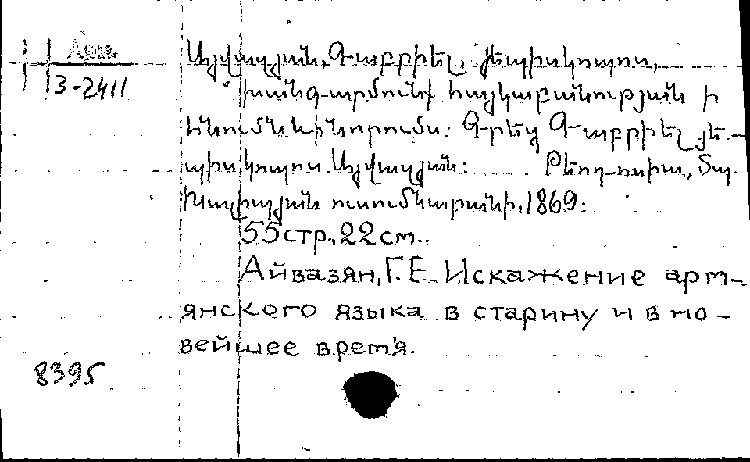 Арм.
3-2411
Այվազյան, Գաբրիել, եպիսկոպոս,
Խանգարմունք հայկաբանության ի
հնումն և ի նորումս. Գրեց Գաբրիել ե-
պիսկոպոս Այվազյան: Թեոդոսիա, տպ.
Խալիպյան ուսումնարանի, 1869.
55 стр., 22 см.
Айвазян, Г. Е. Искажение арм-
янского языка в старину и в но-
вейшее время.
8395